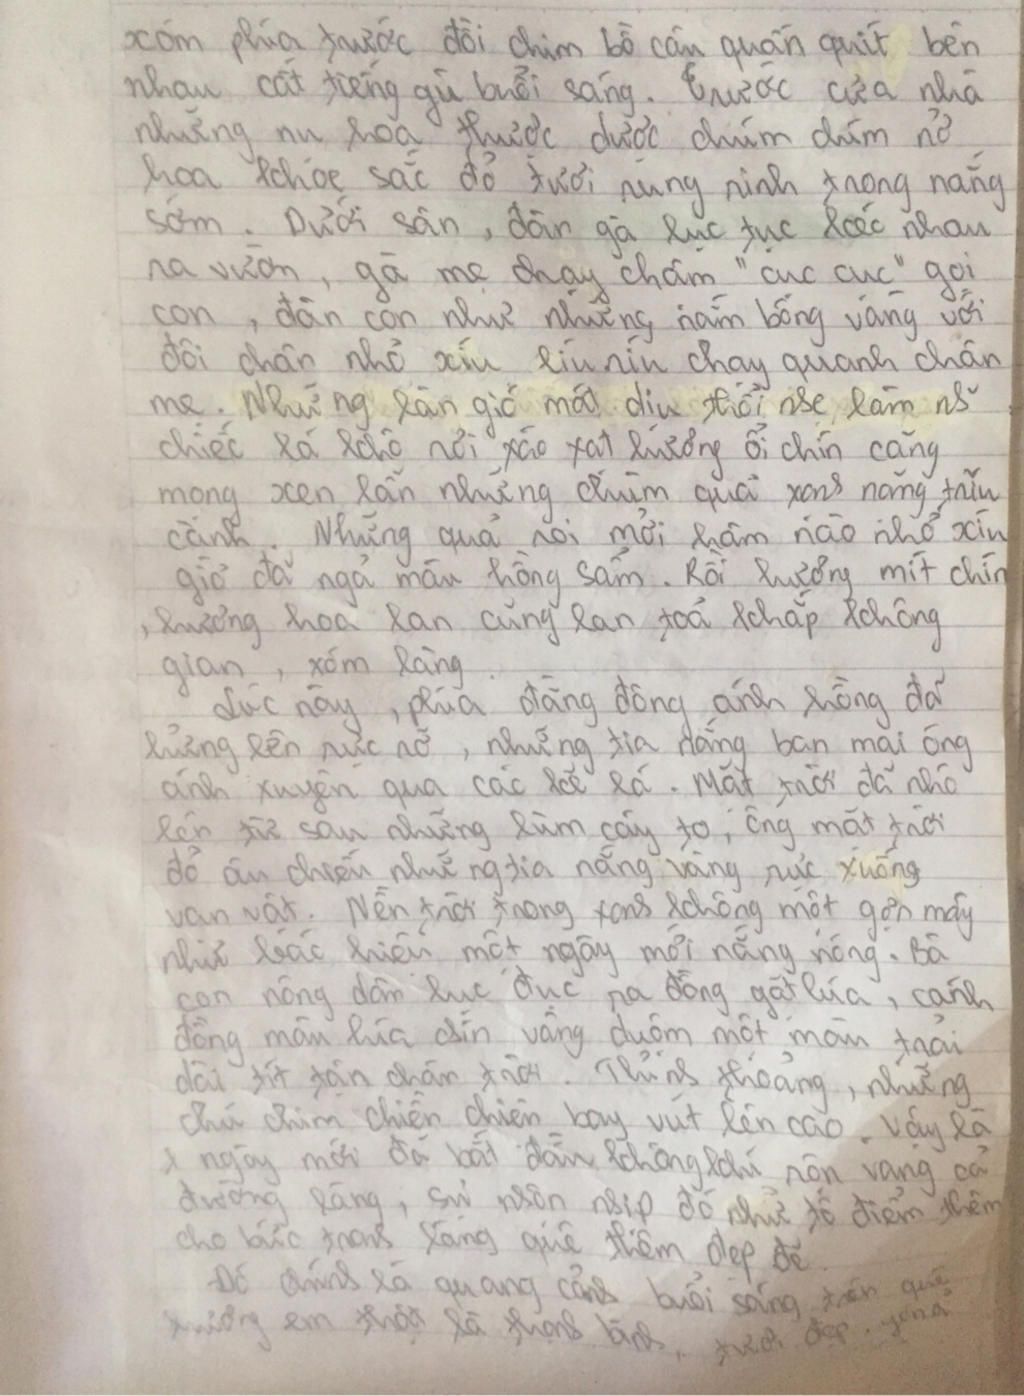 xóm phía trước đôi chim bồ câu quấn quít bên
nhau cất tiếng gù buổi sáng. Trước cửa nhà
những nụ hoa thược dược chúm chím nở
hoa khoe sắc đỏ tươi rung rinh trong nắng
sớm. Dưới sân, đàn gà lục tục kéo nhau
ra vườn, gà mẹ chạy chậm "cục cục" gọi
con, đàn con như những nắm bông vàng với
đôi chân nhỏ xíu líu ríu chạy quanh chân
mẹ. Những làn gió mát dịu thổi nhẹ làm
chiếc lá khô rơi xào xạt hương ổi chín căng
mọng xen lẫn những chùm quả xanh nặng trĩu
cành. Những quả roi mới hôm nào nhỏ xíu
giờ đã ngả màu hồng sẫm. Rồi hương mít chín
, hương hoa lan cũng lan toả khắp không
gian, xóm làng.
Lúc này, phía đằng đông ánh hồng đã
hửng lên rực rỡ, những tia nắng ban mai óng
ánh xuyên qua các kẽ lá. Mặt trời đã nhô
lên từ sau những lùm cây to, ông mặt trời
đỏ âu chiếu những tia nắng vàng rực xuống
vạn vật. Nền trời trong xanh không một gợn mây
như báo hiệu một ngày mới nắng nóng. Bà
con nông dân lục đục ra đồng gặt lúa, cánh
đồng màu lúa chín vàng duộm một màu trải
dài tít tận chân trời. Thỉnh thoảng, những
chú chim chiền chiện bay vút lên cao. Vậy là
1 ngày mới đã bắt đầu không khí rộn vang cả
đường làng, sự nhộn nhịp đó như tô điểm thêm
cho bức tranh làng quê thêm đẹp đẽ.
Đó chính là quang cảnh buổi sáng trên quê
hương em thật là thanh bình, tươi đẹp, yên ả